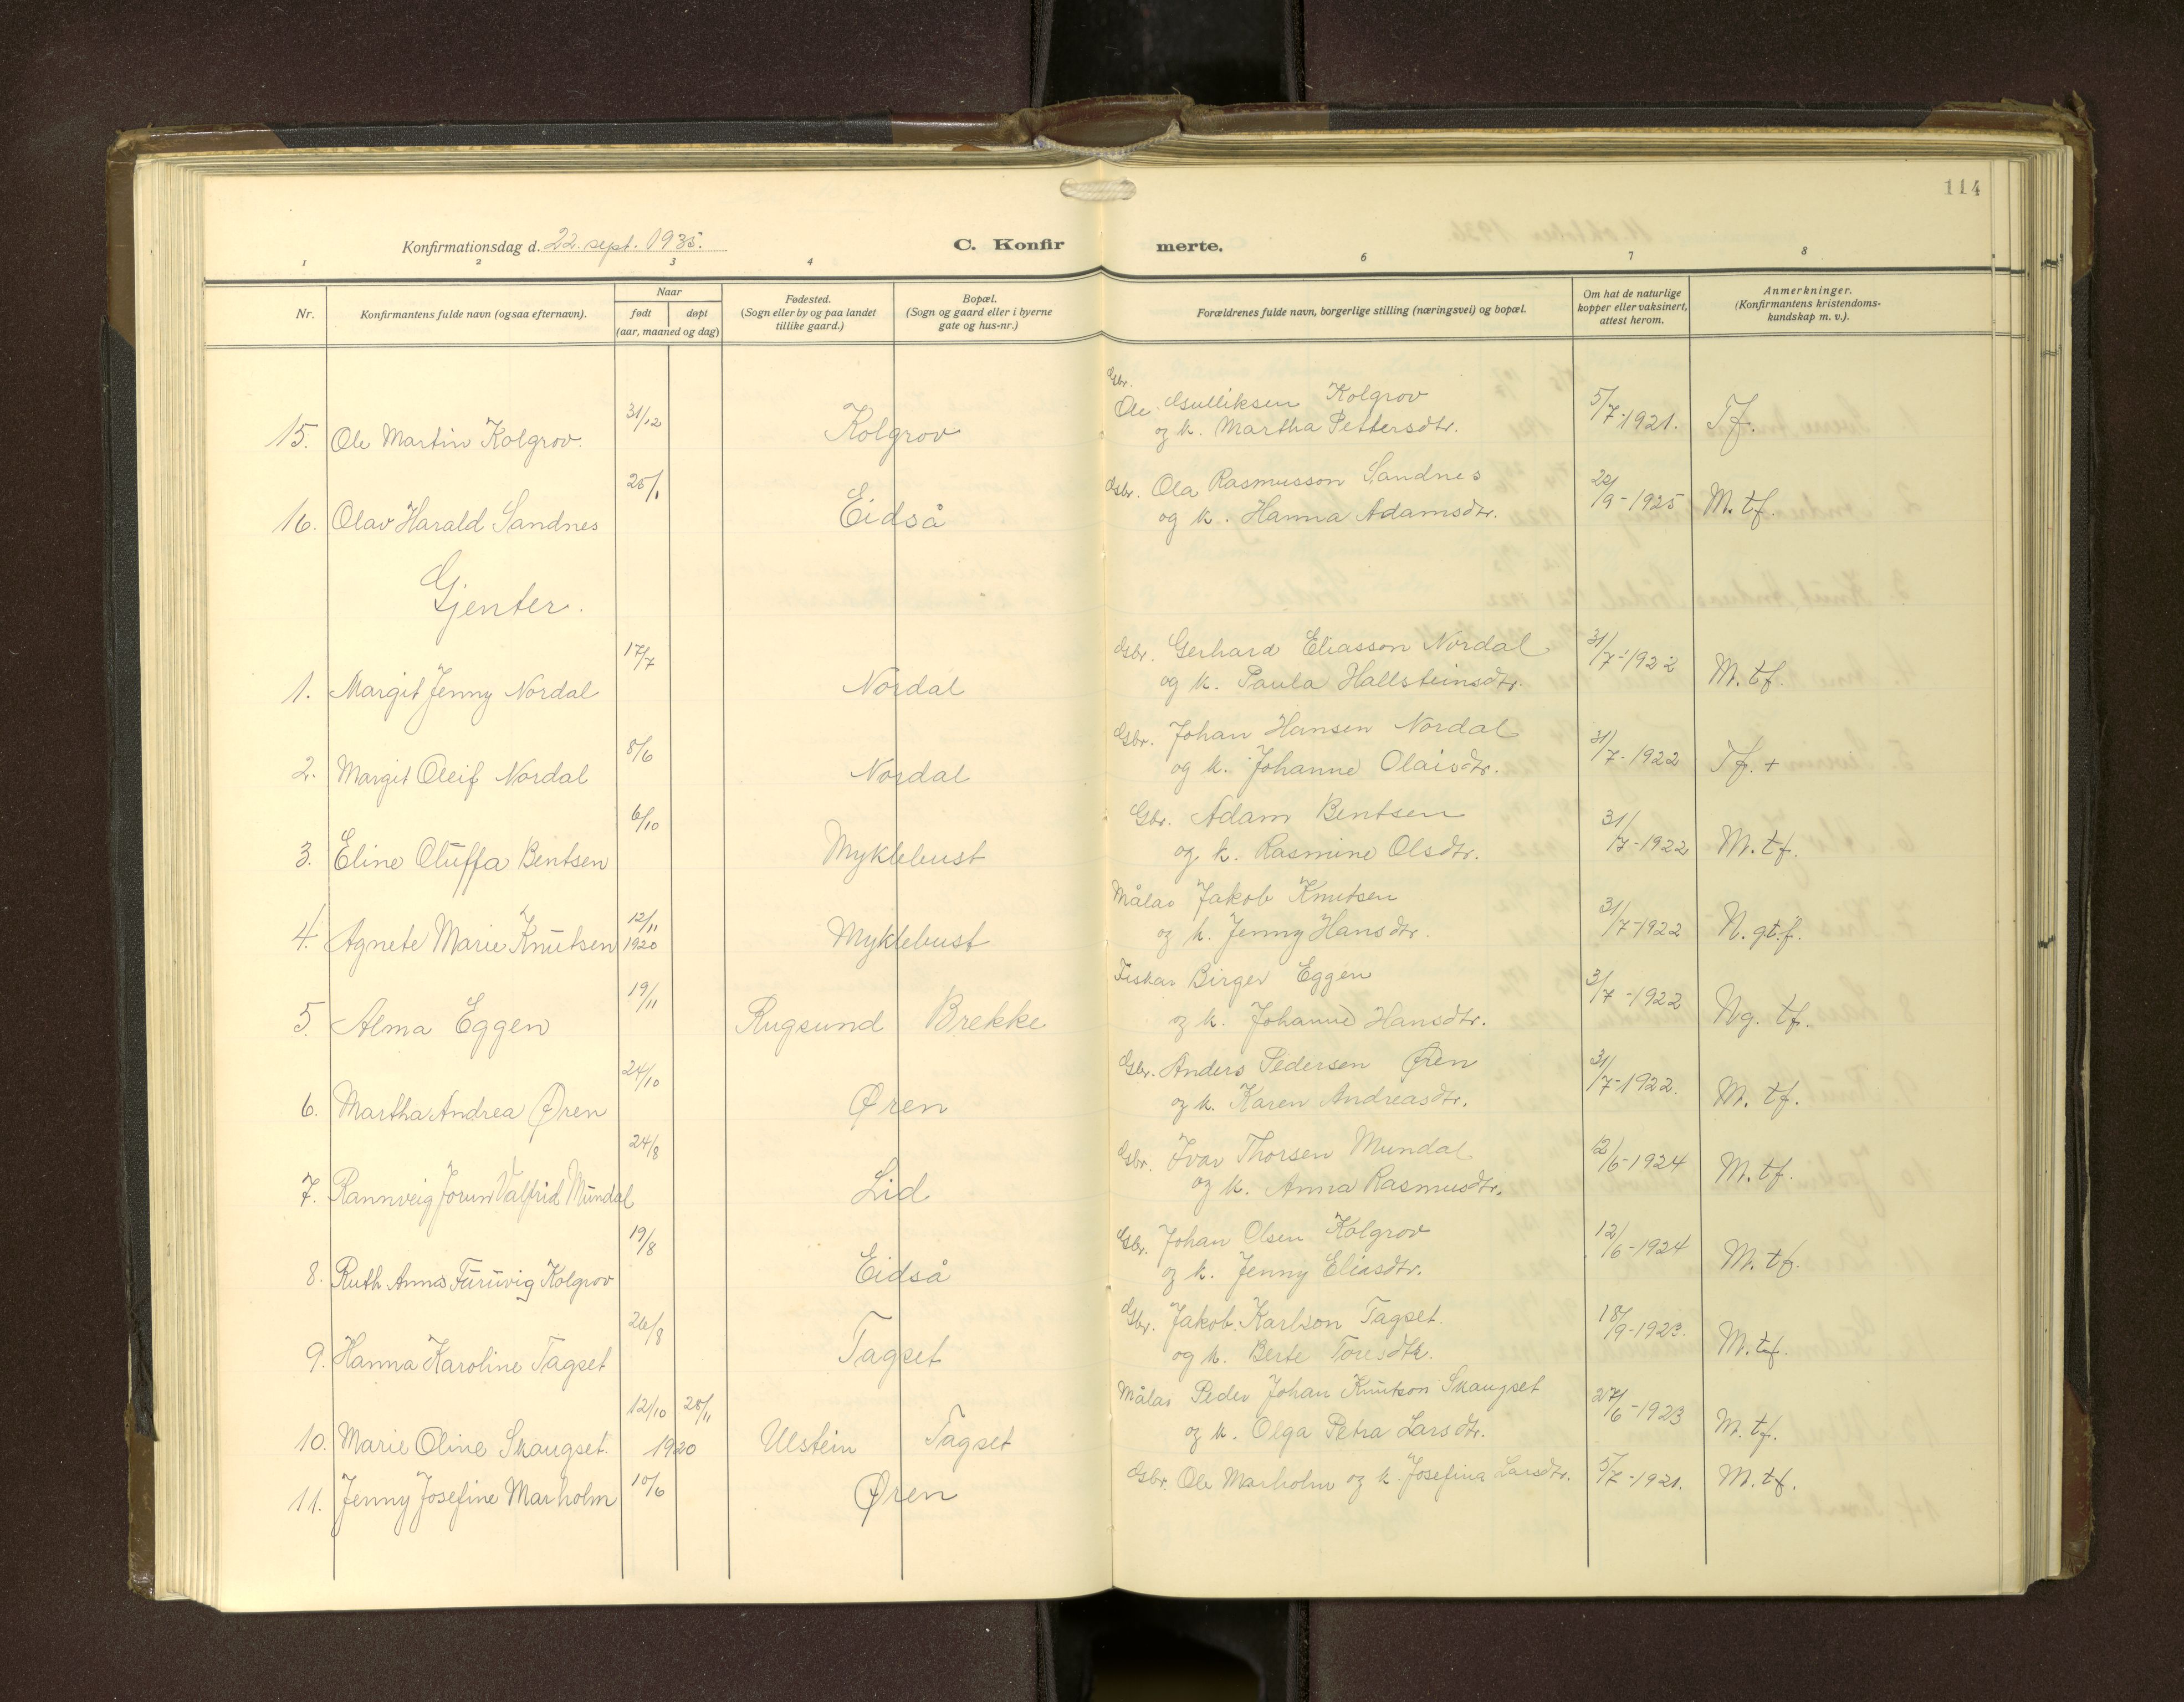 114
Konfirmationsdag d. 22. sept. 1935.
C. Konfirmerte.
1 2 3 4 6 7 8
Nr.
Konfirmantens fulde navn (ogsaa efternavn).
Naar
født døpt
(aar, maaned og dag)
Fødested.
(Sogn eller by og paa landet
tillike gaard.)
Bopæl.
(Sogn og gaard eller i byerne
gate og hus-nr.)
Forældrenes fulde navn, borgerlige stilling (næringsvei) og bopæl.
Om hat de naturlige
kopper eller vaksinert,
attest herom.
Anmerkninger.
(Konfirmantens kristendoms-
kundskap m. v.).
15. Ole Martin Kolgrov. 31/12 Kolgrov Gbr. Ole Gulliksen Kolgrov
og k. Martha Pettersdtr. 5/7-1921. Tf.
16. Olav Harald Sandnes 25/1 Eidså Gbr. Ola Rasmusson Sandnes
og k. Hanna Adamsdtr. 22/9-1925 M.tf.
Gjenter.
1. Margit Jenny Nordal 17/7 Nordal Gbr. Gerhard Eliasson Nordal
og k. Paula Hallsteinsdtr. 31/7-1922 M.tf.
2. Margit Oleif Nordal 8/6 Nordal Gbr. Johan Hansen Nordal
og k. Johanne Olaisdtr. 31/7-1922 Tf. +
3. Eline Oluffa Bentsen 6/10 Myklebust Gbr. Adam Bentsen
og k. Rasmine Olsdtr. 31/7-1922 M.tf.
4. Agnete Marie Knutsen 12/11 1920 Myklebust Målar Jakob Knutsen
og k. Jenny Hansdtr. 31/7-1922 N.gt.f.
5. Alma Eggen 19/11 Rugsund Brekke Fiskar Birger Eggen
og k. Johanne Hansdtr. 3/7-1922 Ng. tf.
6. Martha Andrea Øren 24/10 Øren Gbr. Anders Pedersen Øren
og k. Karen Andreasdtr. 31/7-1922. M. tf.
7. Rannveig Jorun Valfrid Mundal 24/8 Lid Gbr. Ivar Thorsen Mundal
og k. Anna Rasmusdtr. 12/6-1924 M.tf.
8. Ruth Anna Furuvig Kolgrov 19/8 Eidså Gbr. Johan Olsen Kolgrov
og k. Jenny Eliasdtr. 12/6-1924 M.tf.
9. Hanna Karoline Tagset 26/8 Tagset Gbr. Jakob Karlson Tagset.
og k. Berte Toresdtr. 18/9-1923. M.tf.
10. Marie Oline Skaugset. 12/10 28/11 1920 Ulstein Tagset Målar Peder Johan Knutson Skaugset
og k. Olga Petra Larsdtr. 27/6-1923 M.tf.
11. Jenny Josefine Marholm 10/6 Øren Gbr. Ole Marholm og k. Josefina Larsdtr. 5/7-1921. M.tf.